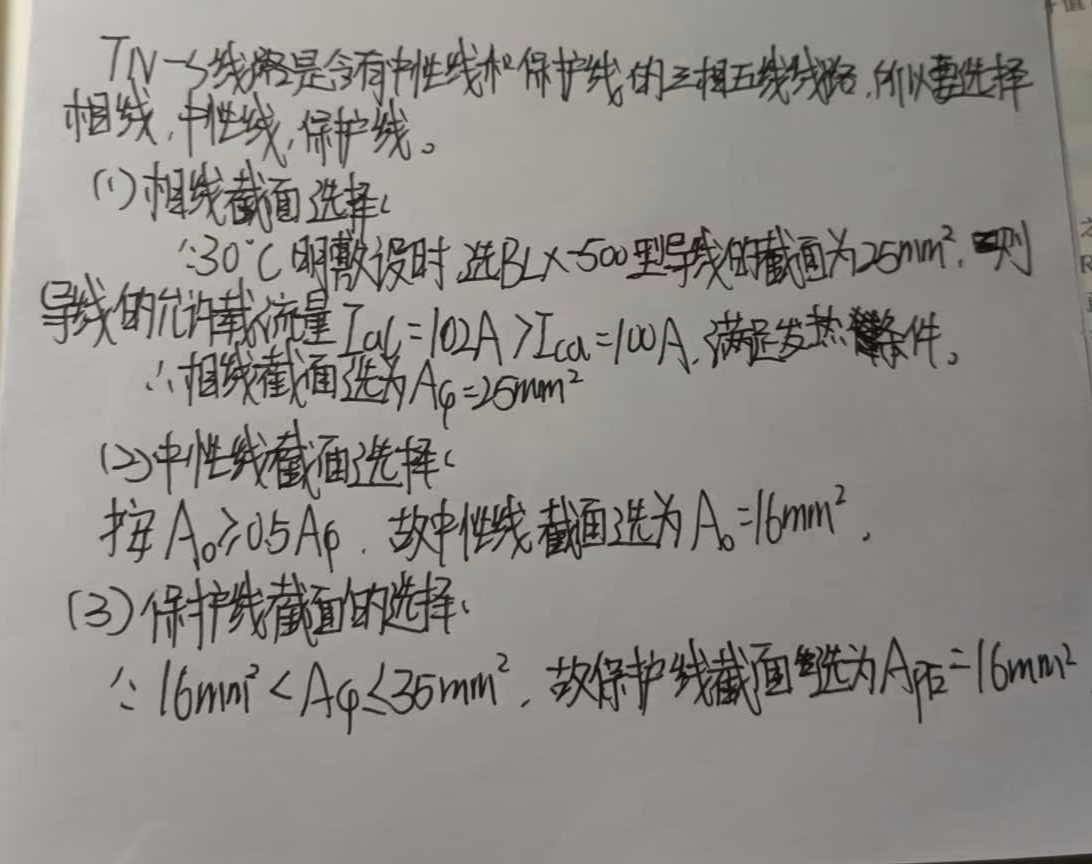 TN-S线路是含有中性线和保护线的三相五线线路,所以要选择
相线,中性线,保护线。
(1)相线截面选择:
∵30°C明敷设时,选BLX-500型导线的截面为25mm²,则
导线的允许载流量Ial=102A>Ica=100A,满足发热条件。
∴相线截面选为Aφ=25mm²
(2)中性线截面选择:
按A₀≥0.5Aφ,故中性线截面选为A₀=16mm²,
(3)保护线截面的选择:
∵16mm²<Aφ≤35mm²,故保护线截面选为APE=16mm²